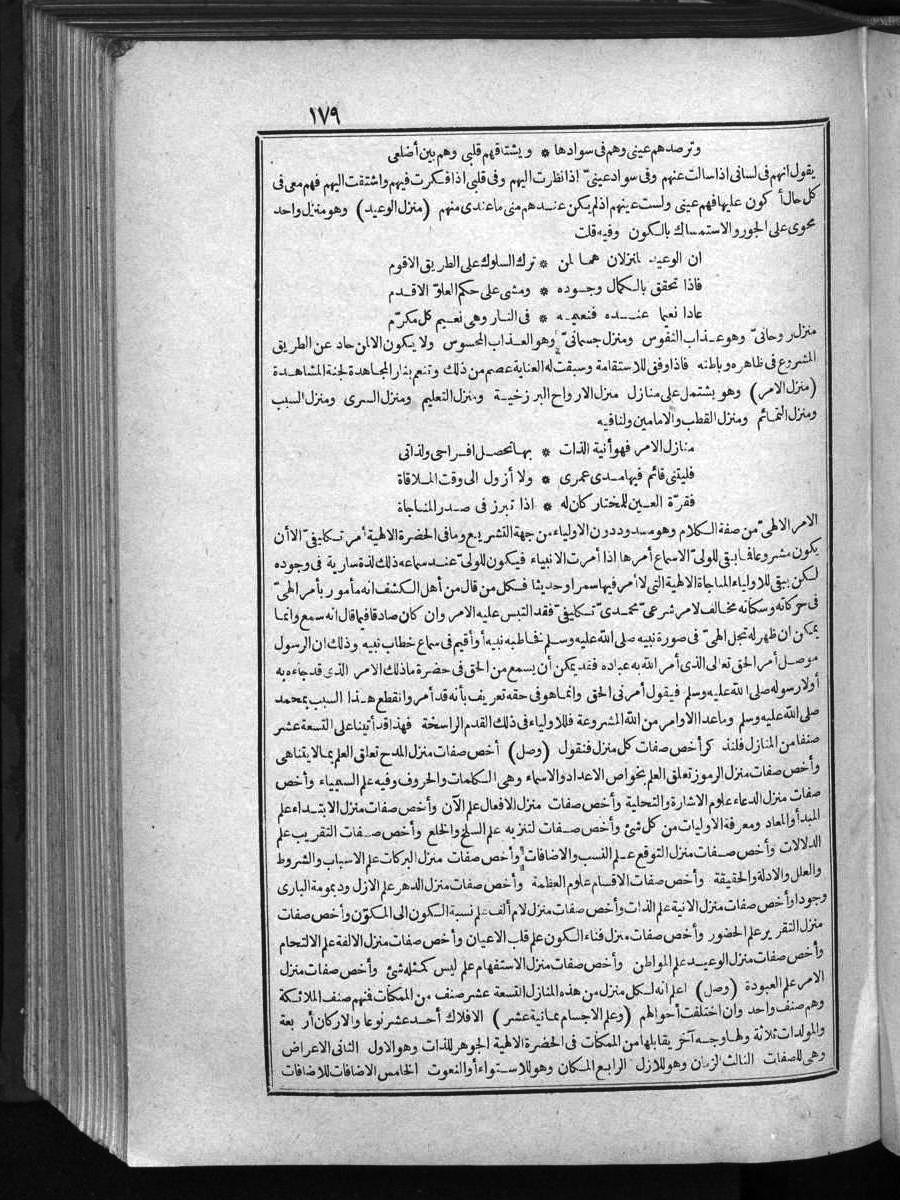 ١٧٩
وترصدهم عيني وهم في سوادها * ويشتاقهم قلبي وهم بين أضلعي
يقول انهم في لساني اذا سالت عنهم وفي سواد عيني اذا نظرت اليهم وفي قلبي اذا فكرت فيهم واشتقت اليهم فهم معي في
كل حال أكون عليها فهم عيني ولست عينهم اذ لم يكن عندهم مني ما عندي منهم (منزل الوعيد) وهو منزل واحد
محوى على الجور والاستمساك بالكون وفيه قلت
ان الوعيد لمنزلان هما لمن * ترك السلوك على الطريق الاقوم
فاذا تحقق بالكمال وجوده * ومشى على حكم العلوّ الاقدم
عادا نعيما عنده فنعيمه * في النار وهي نعيم كل مكرّم
منزل روحانيّ وهو عذاب النفوس ومنزل جسمانيّ وهو العذاب المحسوس ولا يكون الا لمن حاد عن الطريق
المشروع في ظاهره وباطنه فاذا وفق للاستقامة وسبقت له العناية عصم من ذلك وتنعم بنار المجاهدة لجنة المشاهدة
(منزل الامر) وهو يشتمل على منازل منزل الارواح البرزخية ومنزل التعليم ومنزل السرى ومنزل السبب
ومنزل التمائم ومنزل القطب والامامين ولنا فيه
منازل الامر فهوأنية الذات * بها تحصل افراحي ولذاتي
فليتني قائم فيها مدى عمري * ولا أزول الى وقت الملاقاة
فقرّة العين للمختار كان له * اذا تبرز في صدر المناجاة
الامر الالهيّ من صفة الكلام وهو مسدود دون الاولياء من جهة التشريع وما في الحضرة الالهية أمر تكليفيّ الا أن
يكون مشروعا فما بقي للوليّ الا سماع أمرها اذا أمرت الانبياء فيكون للوليّ عند سماعه ذلك لذة سارية في وجوده
لكن يبقى للاولياء المناجاة الالهية التي لا أمر فيها سمرا وحديثا فكل من قال من أهل الكشف انه مأمور بأمر الهيّ
في حركاته وسكناته مخالف لامر شرعيّ محمديّ تكليفيّ فقد التبس عليه الامر وان كان صادقا فيما قال انه سمع وانما
يمكن ان ظهر له تجل الهيّ في صورة نبيه صلى الله عليه وسلم فخاطبه نبيه أو أقيم في سماع خطاب نبيه وذلك ان الرسول
موصل أمر الحق تعالى الذي أمر الله به عباده فقد يمكن أن يسمع من الحق في حضرة ما ذلك الامر الذي قد جاءه به
أولا رسوله صلى الله عليه وسلم فيقول أمرني الحق وانما هو في حقه تعريف بأنه قد أمر وانقطع هذا السبب بمحمد
صلى الله عليه وسلم وما عدا الاوامر من الله المشروعة فللاولياء في ذلك القدم الراسخة فهذا قد أتينا على التسعة عشر
صنفا من المنازل فلنذكر أخص صفات كل منزل فنقول (وصل) أخص صفات منزل المدح تعلق العلم بما لا يتناهى
وأخص صفات منزل الرموز تعلق العلم بخواص الاعداد والاسماء وهي الكلمات والحروف وفيه علم السيمياء وأخص
صفات منزل الدعاء علوم الاشارة والتحلية وأخص صفات منزل الافعال علم الآن وأخص صفات منزل الابتداء علم
المبدأ والمعاد ومعرفة الاوليات من كل شئ وأخص صفات لتنزيه علم السلخ والخلع وأخص صفات التقريب علم
الدلالات وأخص صفات منزل التوقع علم النسب والاضافات وأخص صفات منزل البركات علم الاسباب والشروط
والعلل والادلة والحقيقة وأخص صفات الاقسام علوم العظمة وأخص صفات منزل الدهر علم الازل وديمومة البارى
وجودا وأخص صفات منزل الانية علم الذات وأخص صفات منزل لام ألف علم نسبة الكون الى المكوّن وأخص صفات
منزل التقرير علم الحضور وأخص صفات منزل فناء الكون علم قلب الاعيان وأخص صفات منزل الالفة علم الالتحام
وأخص صفات منزل الوعيد علم المواطن وأخص صفات منزل الاستفهام علم ليس كمثله شئ وأخص صفات منزل
الامر علم العبودة (وصل) اعلم انه لكل منزل من هذه المنازل التسعة عشر صنف من الممكنات فمنهم صنف الملائكة
وهم صنف واحد وان اختلفت أحوالهم (وعلم الاجسام ثمانية عشر) الافلاك أحد عشر نوعا والاركان أربعة
والمولدات ثلاثة ولها وجه آخر يقابلها من الممكنات في الحضرة الالهية الجوهر للذات وهو الاول الثاني الاعراض
وهي للصفات الثالث الزمان وهو للازل الرابع المكان وهو للاستواء أو النعوت الخامس الاضافات للاضافات